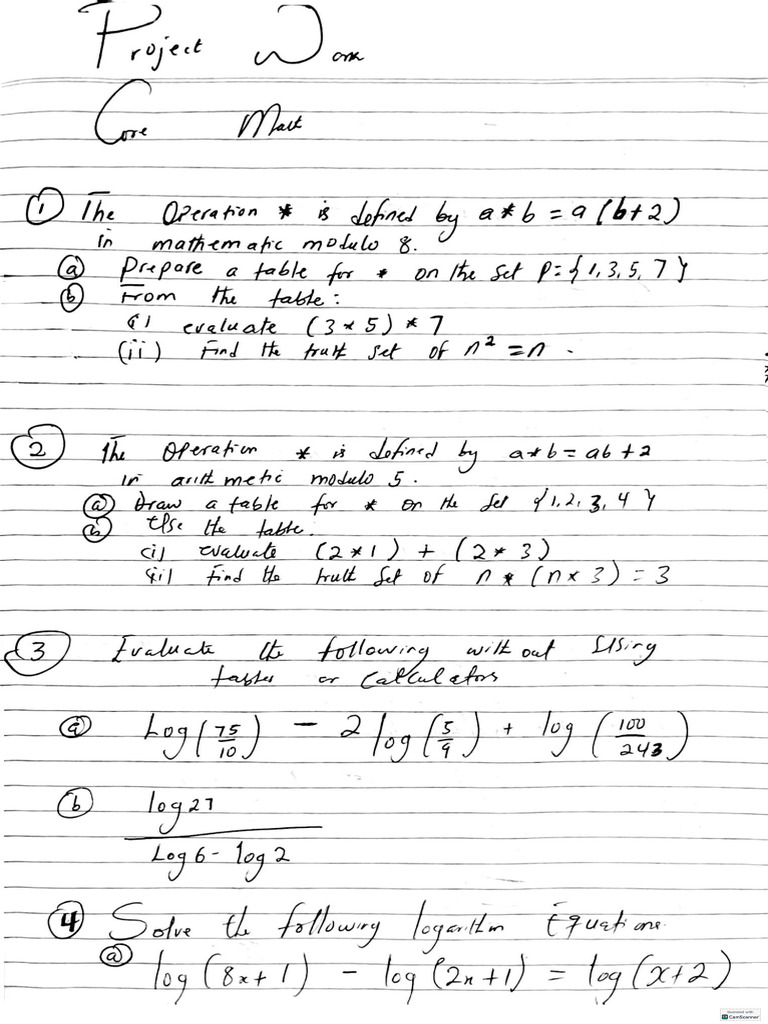 Project Work
Core Math
① The Operation * is defined by a*b = a(b+2)
in mathematic modulo 8.
ⓐ Prepare a table for * on the set P={1,3,5,7}
ⓑ From the table:
(i) evaluate (3*5)*7
(ii) Find the truth set of n² = n.
② The operation * is defined by a*b = ab+2
in arithmetic modulo 5.
ⓐ Draw a table for * on the set {1,2,3,4}
ⓑ Use the table.
(i) evaluate (2*1) + (2*3)
(ii) Find the truth set of n*(n×3) = 3
③ Evaluate the following without using
tables or calculators
ⓐ Log(75/10) - 2log(5/9) + log(100/243)
ⓑ log27 / Log6 - log2
④ Solve the following logarithm Equations.
ⓐ log(8x+1) - log(2x+1) = log(x+2)
Scanned with
CamScanner